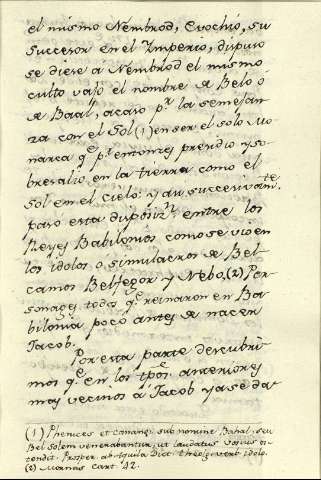 el mismo Nembrod, Evochio, su
Succesor en el Imperio, dispuso
se diese á Nembrod el mismo
culto vajo el nombre de Belo ó
de Baal, acaso pr. la semejan
za con el Sol (1) en ser el solo Mo
narca qe. pr. entonces prendio y so
bresalio en la tierra como el
Sol en el cielo: y asi succesivamte.
paso esta disposizn. entre los
Reyes Babilonios como se vió en
los ydolos o simulacros de Bel
camos Belfegor y Nebo, (2) Per
sonages todos qe. reinaron en Ba
bilonia poco antes de nacer
Jacob.
Por esta parte descubri
mos qe. en los tpos. anteriores
mas vecinos á Jacob ya se da
(1) Phenices et Cananei sub nomine Bahal, seu
Bel Solem venerabantur, ut laudatus Vosius os
tendit. Prosper. ab Aquila Dict. theolg. verb. idolo.
(2) Marius cart. 12.